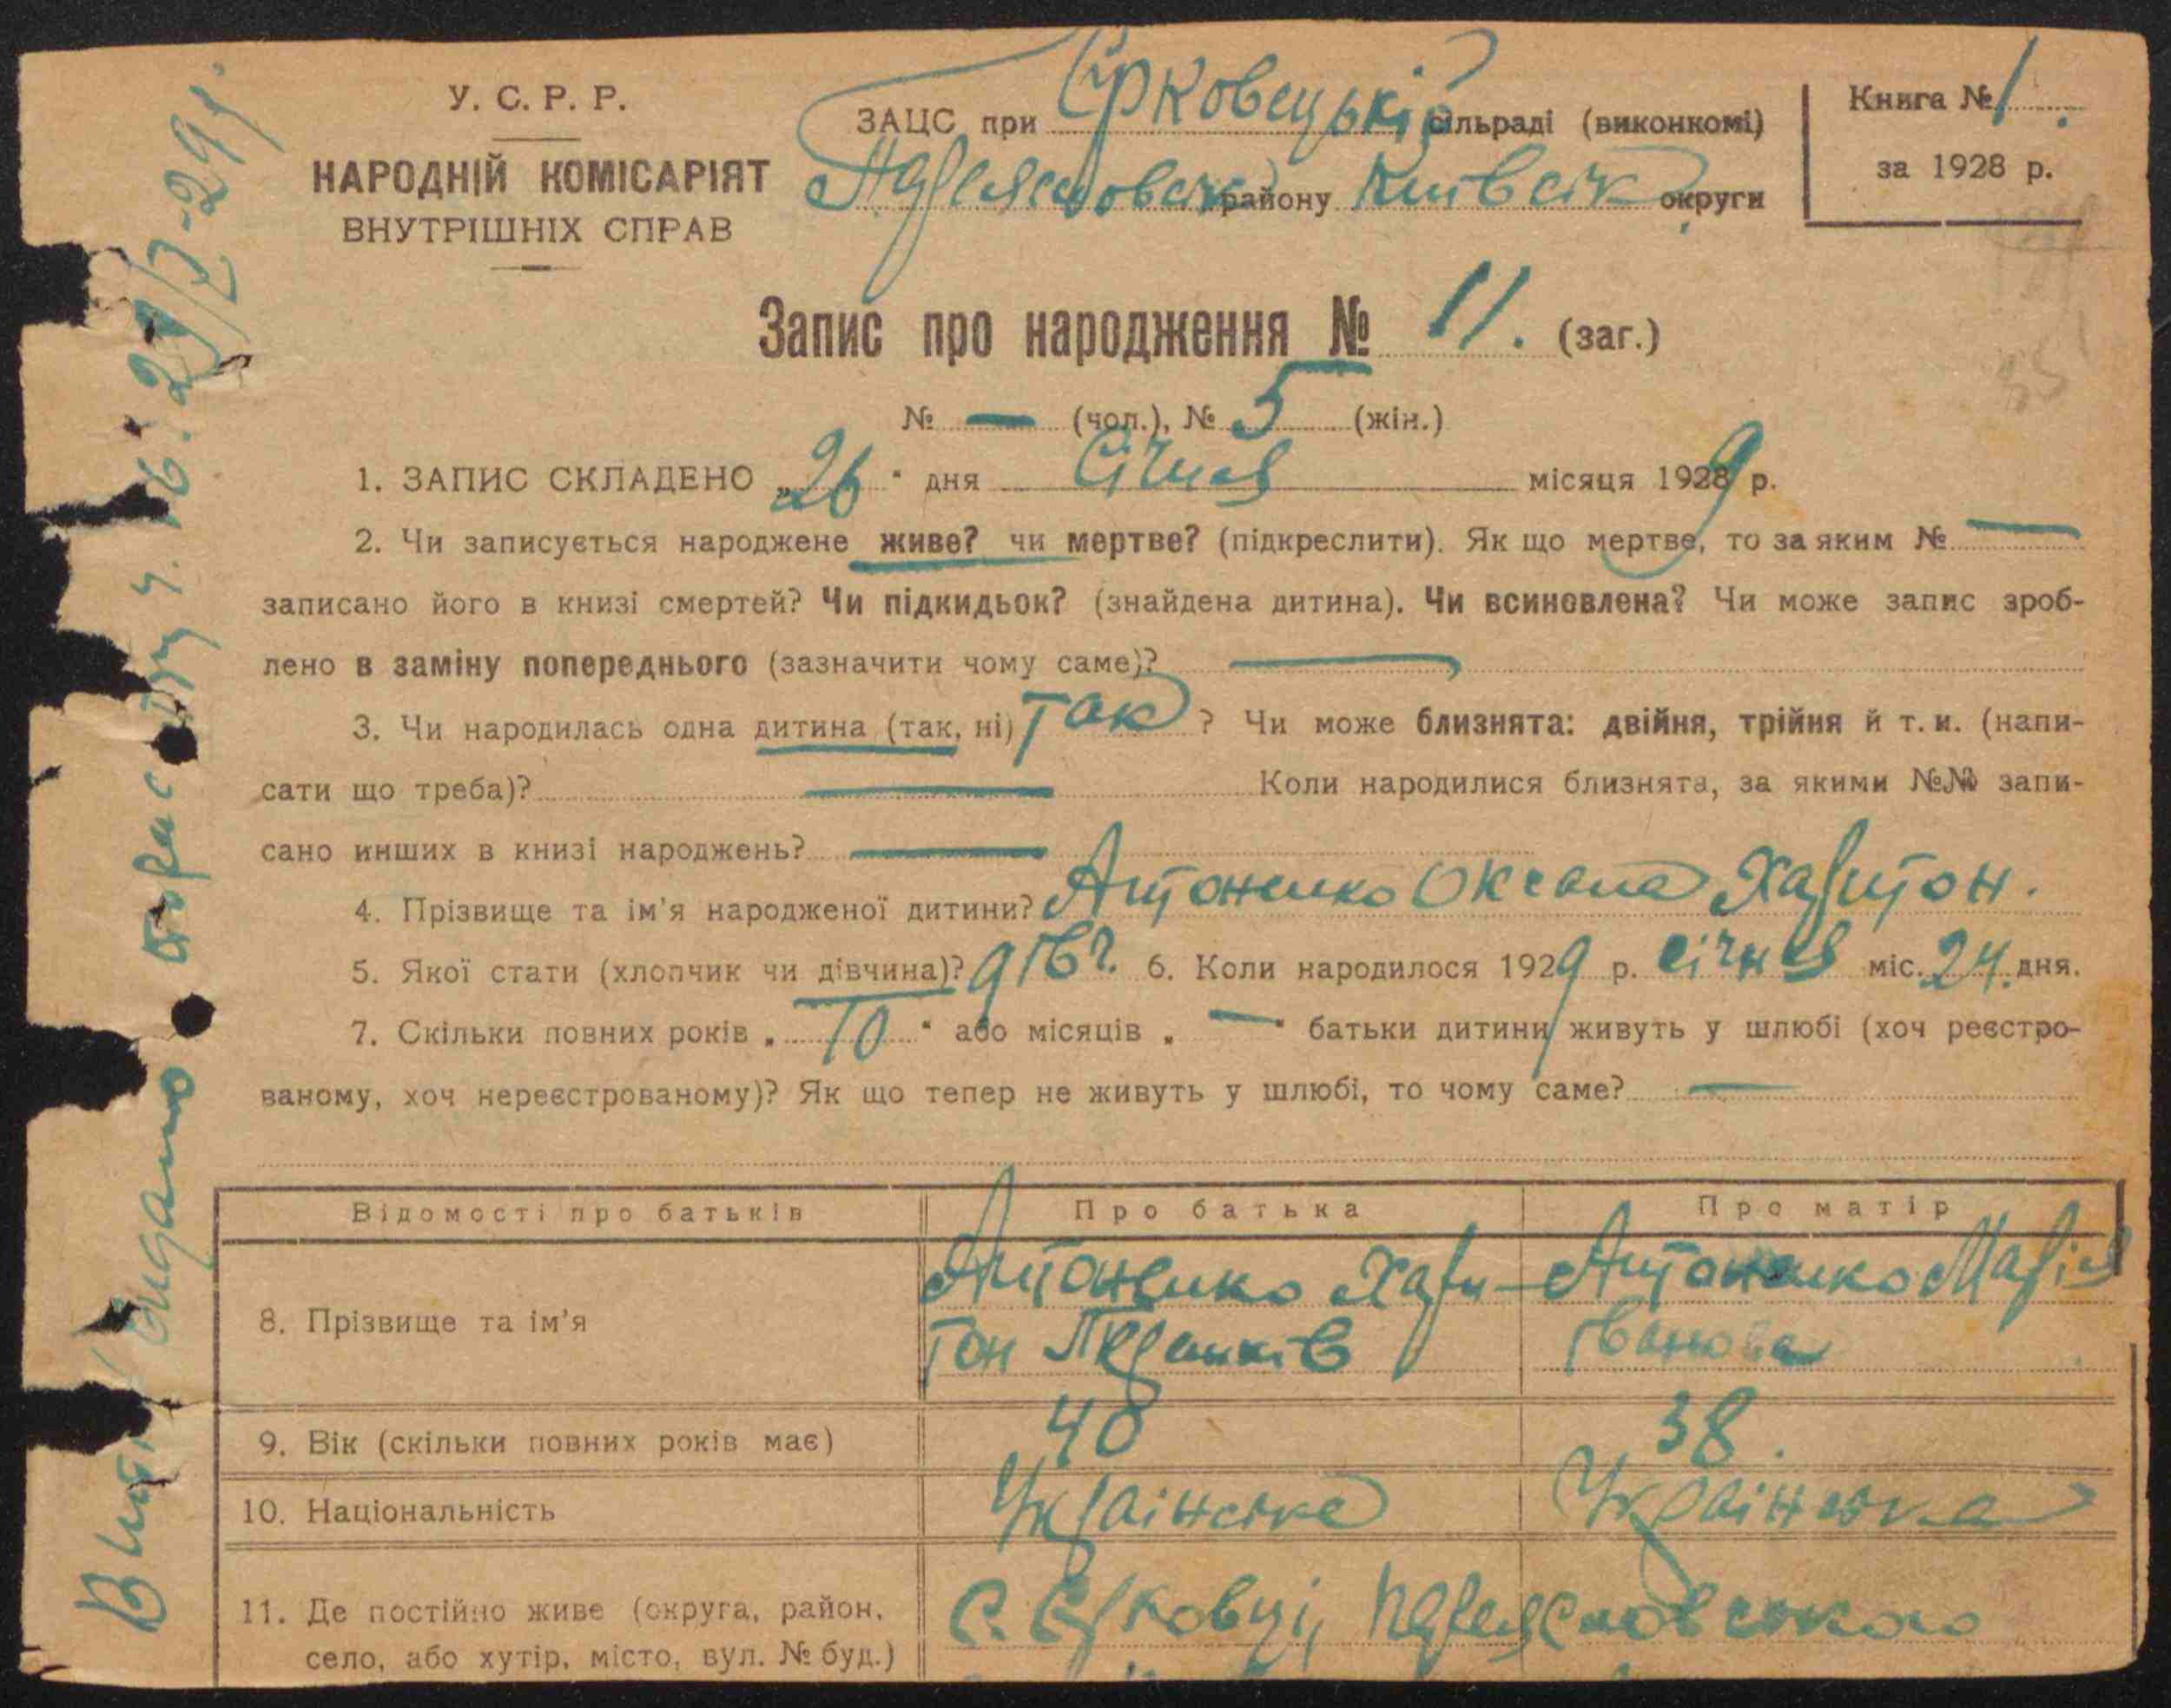 У. С. Р. Р.
НАРОДНІЙ КОМІСАРІЯТ
ВНУТРІШНІХ СПРАВ
ЗАЦС при Єрковецькій сільраді (виконкомі)
району Київськ округи
Книга № 1.
за 1928 р.
Запис про народження № 11. (заг.)
№ — (чол.), № 5 (жін.)
1. ЗАПИС СКЛАДЕНО „26" дня Січня місяця 1929 р.
2. Чи записується народжене живе? чи мертве? (підкреслити). Як що мертве, то за яким № —
записано його в книзі смертей? Чи підкидьок? (знайдена дитина). Чи всиновлена? Чи може запис зроб-
лено в заміну попереднього (зазначити чому саме)? —
3. Чи народилась одна дитина (так, ні) Так ? Чи може близнята: двійня, трійня й т. и. (напи-
сати що треба)? — Коли народилися близнята, за якими №№ запи-
сано инших в книзі народжень? —
4. Прізвище та ім'я народженої дитини? Антоненко Оксана Харитон.
5. Якої стати (хлопчик чи дівчина)? дівч. 6. Коли народилося 1929 р. січня міс. 24. дня.
7. Скільки повних років „10" або місяців „—" батьки дитини живуть у шлюбі (хоч реєстро-
ваному, хоч нереєстрованому)? Як що тепер не живуть у шлюбі, то чому саме? —
Відомості про батьків
Про батька
Про матір
8. Прізвище та ім'я
Антоненко Хари-
тон
Антоненко Марія
Іванова
9. Вік (скільки повних років має)
40
38.
10. Національність
Українська
Українська
11. Де постійно живе (округа, район,
село, або хутір, місто, вул. № буд.)
с. Єрковці,
Видано